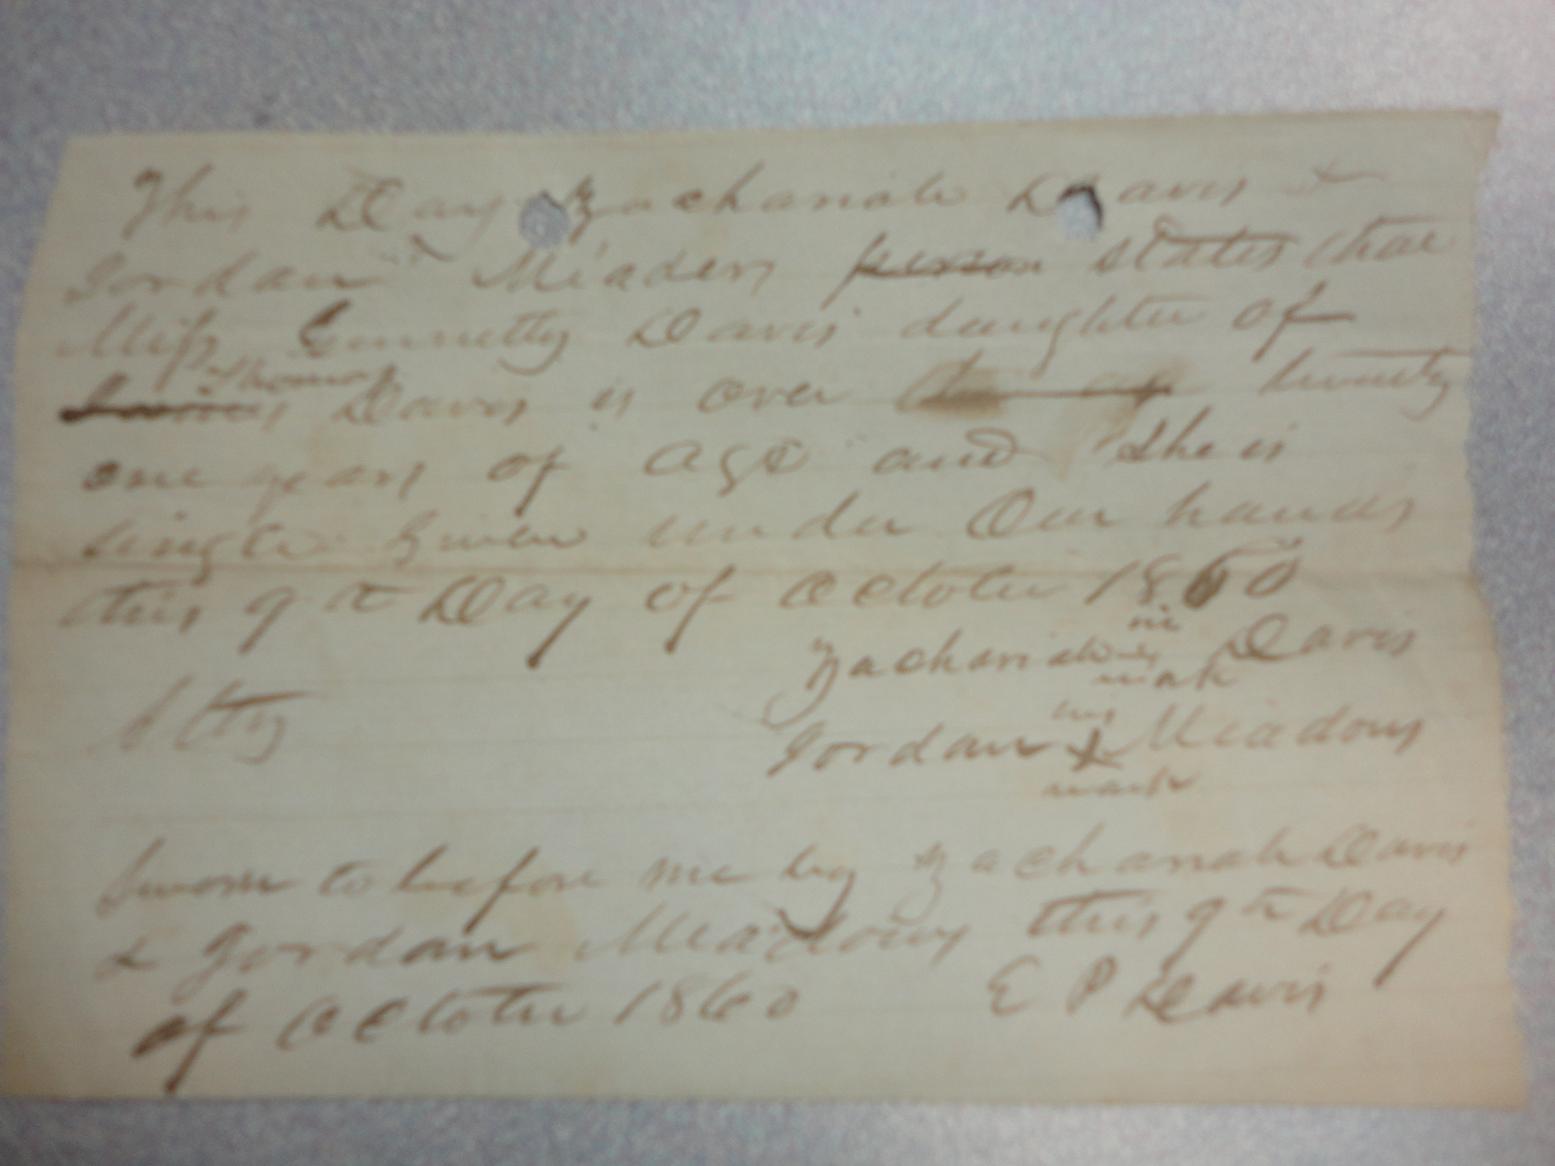 This Day Zachariah Davis &
Jordan Meadors person states that
Miss Emmetty Davis daughter of
Thomas
James Davis is over the age twenty
one years of age and she is
single Given under Our hands
this 9th Day of October 1860
his
Zachariah Davis
mark
his
Jordan X Meadows
mark
Atty
Sworn to before me by Zachariah Davis
& Jordan Meadows this 9th Day
of October 1860 E P Davis